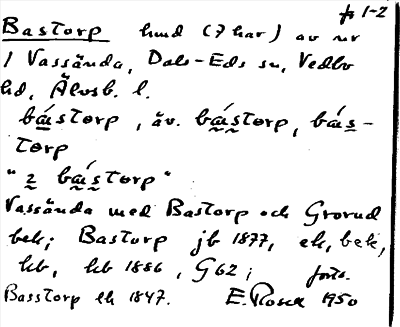 fr 1-2
Bastorp hmd (7 har) av nr
1 Vassända, Dals-Eds sn, Vedbo
hd, Älvsb. l.
bástorp, äv. bástorp, bás-
torp
"z bástorp"
Vassända med Bastorp och Grorud
bek; Bastorp jb 1877, ek, bek,
kb, kb 1886, G62; forts.
Basstorp ek 1847. E. Rosell 1950